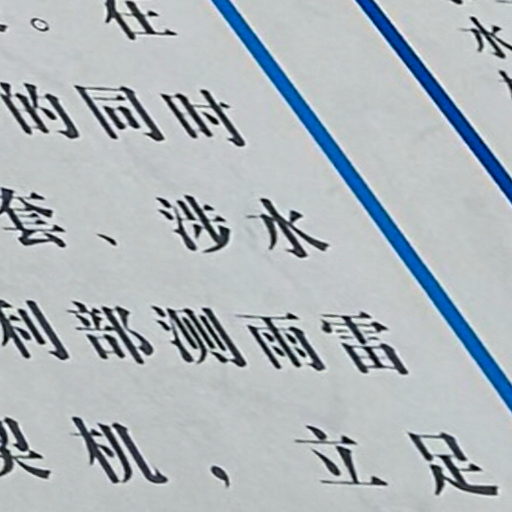 。在
的同时
套、涉水
利部测雨雷
契机，立足
水